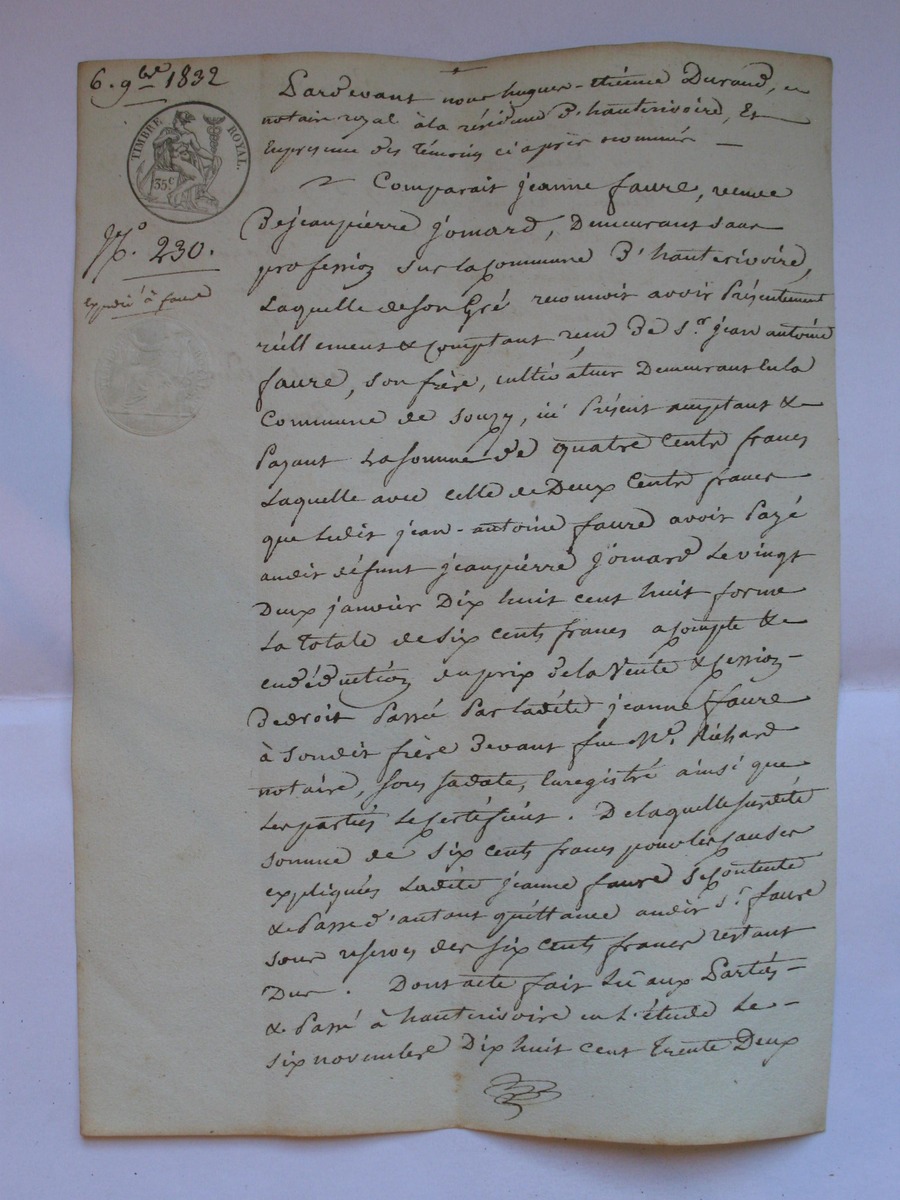 6. 9bre 1832
TIMBRE ROYAL.
35c
N°. 230.
expédié à faure
Pardevant nous hugues-étienne Durand,
notaire royal à la résidence d'hauterivoire, Et
En presence des témoins ci après nommés —
Comparait jeanne faure, veuve
De jeanpierre jomard, Demeurant sans
profession sur la Commune D'hauterivoire,
Laquelle de son Gré reconnoit avoir Présentement
réellement & comptant reçu de Sr. jean antoine
faure, son frère, cultivateur Demeurant En la
Commune de Souzy, ici Présent acceptant &
Payant La Somme de quatre Cents francs
Laquelle avec celle de Deux Cents francs
que Ledit jean-antoine faure avoit Payé
audit défunt jeanpierre jomard Le vingt
Deux janvier Dix huit cent huit forme
La totale de Six Cents francs acompte &
en déduction du prix de la Vente & Cession
De droit Passée Par ladite jeanne faure
à Sondit frère Devant feu Me. Richard
notaire, sous sa date, Enregistré ainsi que
Les parties Le Certifient. De laquelle susdite
somme de Six Cents francs pour les causes
expliquées Ladite jeanne faure Se Contente
& Passe d'autant quittance audit Sr. faure
sous reserves des Six Cents francs restant
Dus. Dont acte fait Lu aux Parties —
& Passé à hauterivoire en L'étude Le —
Six novembre Dix huit cent trente Deux